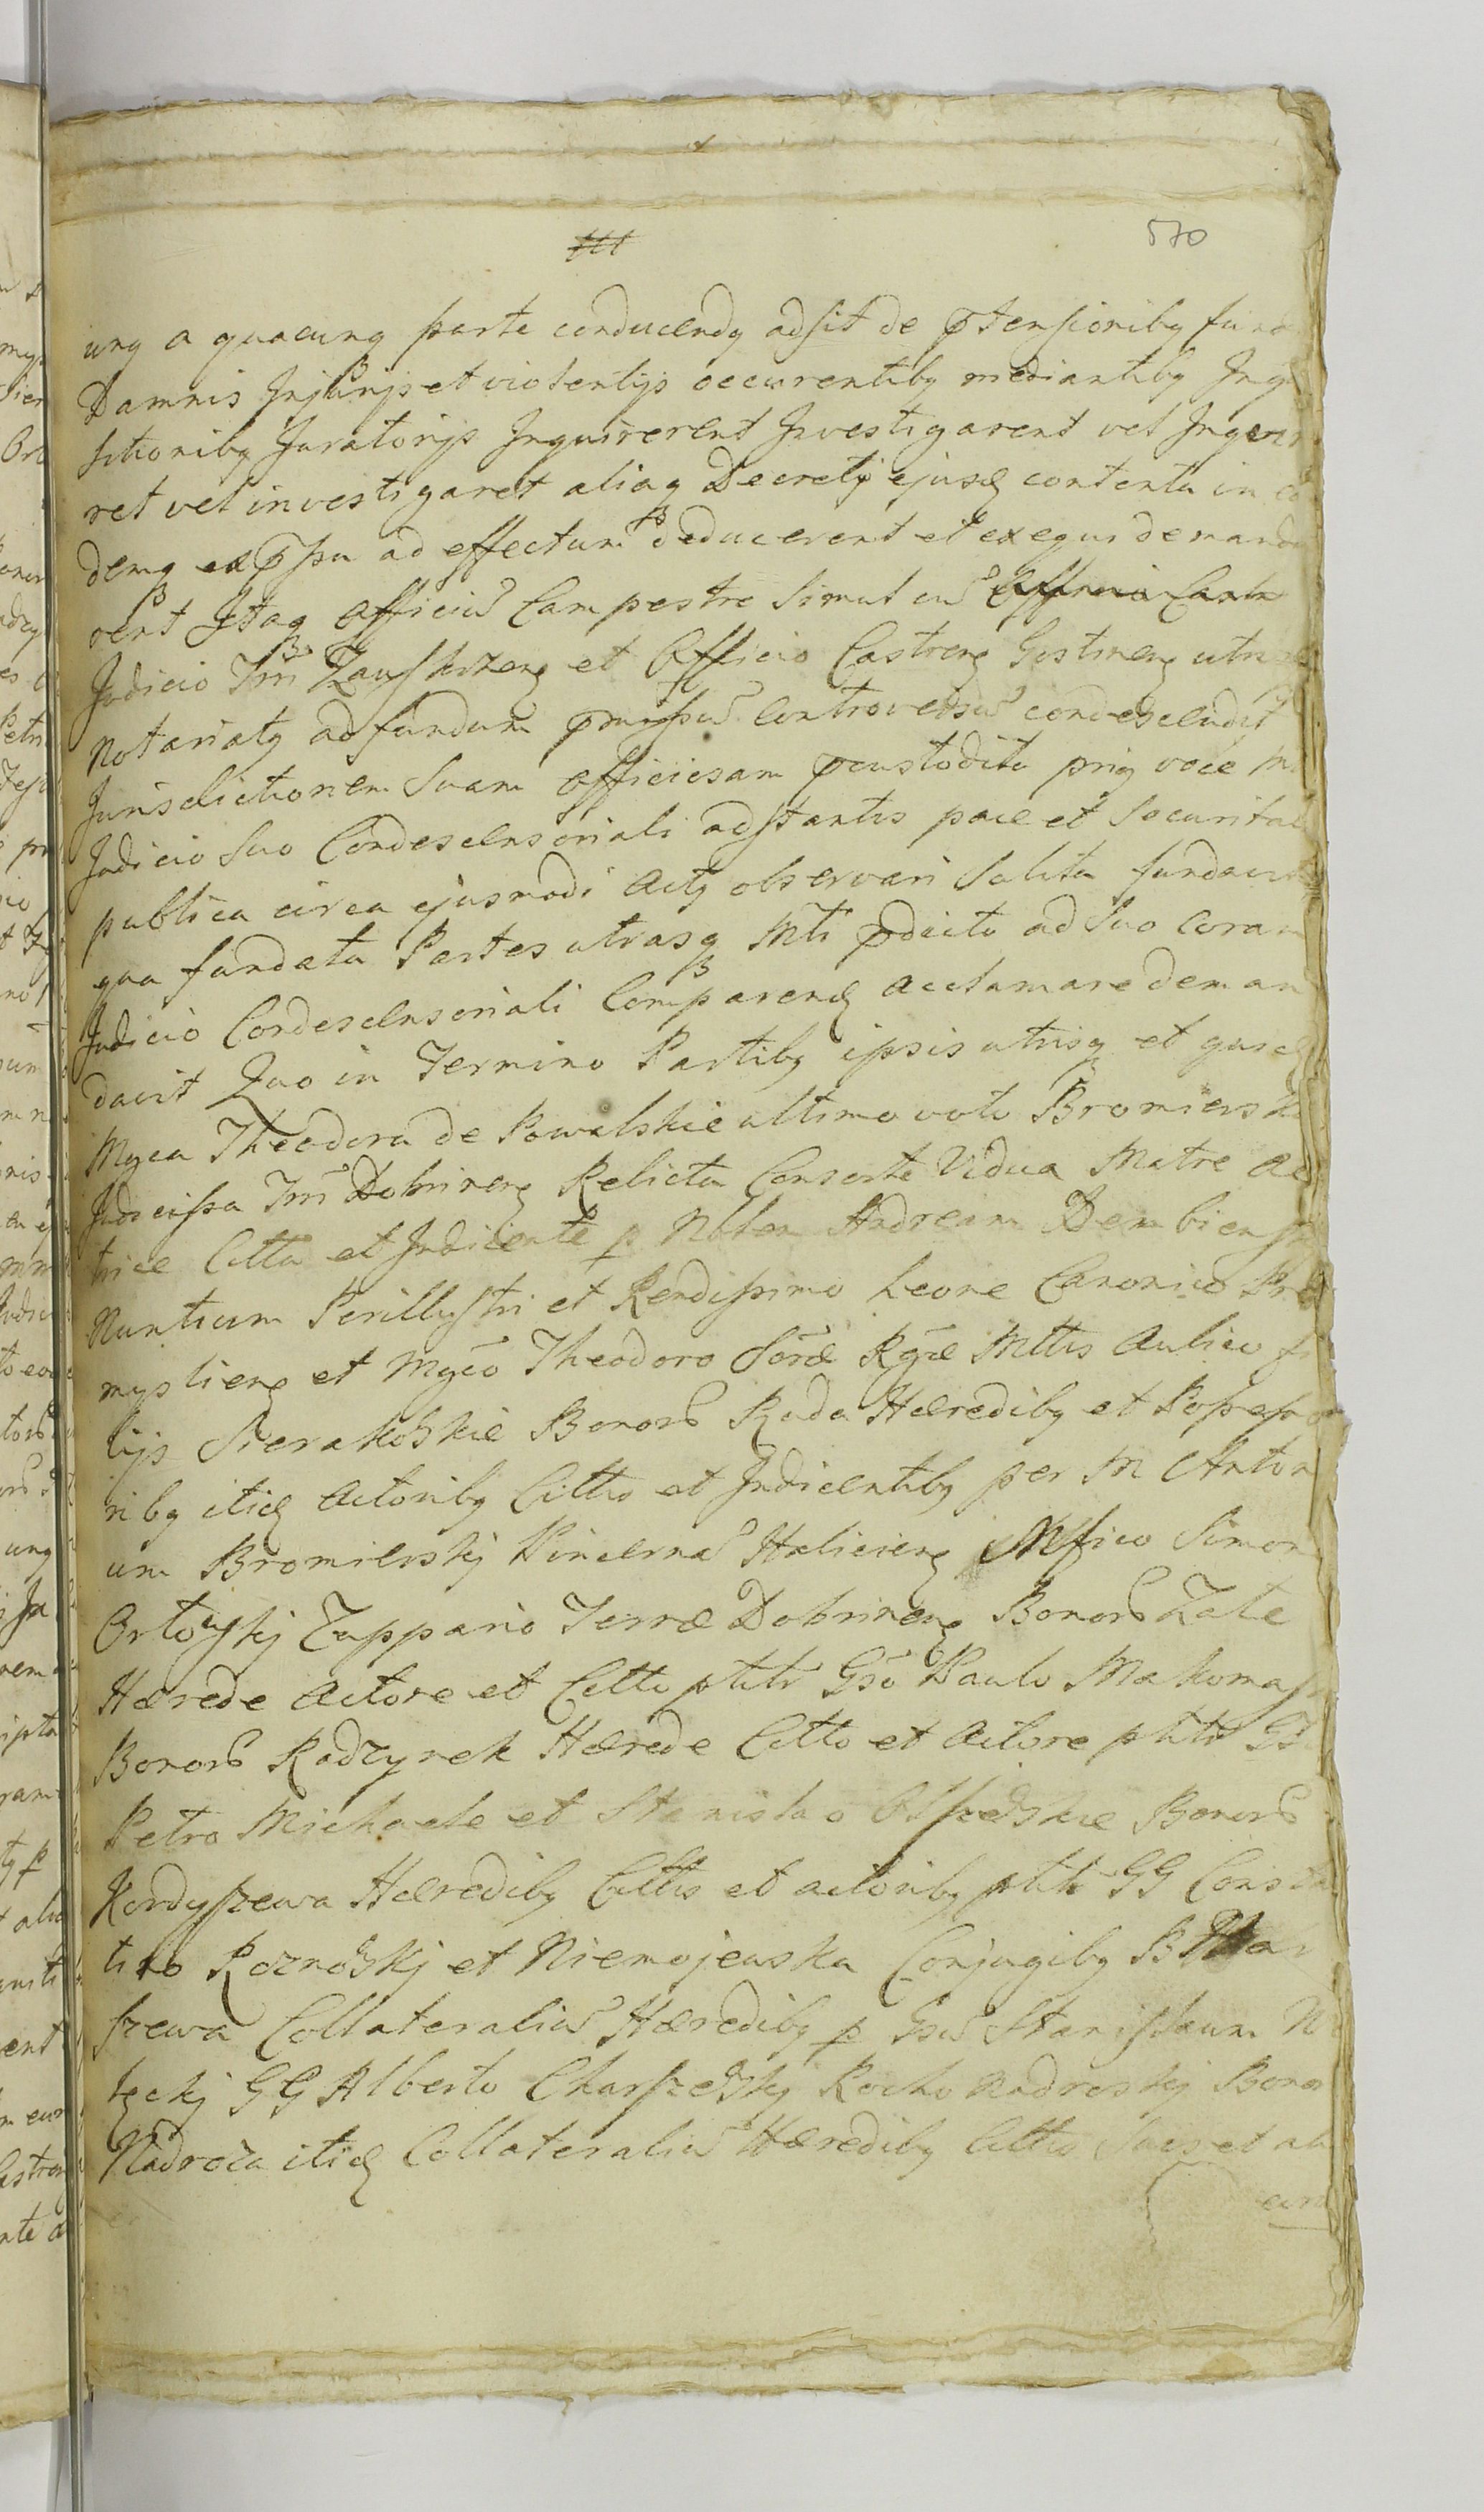 570
unq a quacunq parte conducendq adsit de ptensionibq fund
Damnis Injurijs et violentijs occurrentibq mediantibq Inq
sitionibq Juratorijs Inquirerent Investigarent vel Inquir
ret vel investigaret aliaq Decretj ejusd contenta in
demq ad effectum deducerent et exequi demanda
rent Itaq Officiu Campestre Simul cu
Judicio Trri Zauskrzens et Officio Castrens Gostinens
Notariatq ad fundum controversu condescendit
Jurisdictionem Suam Officiosam pcustodita priq voce
Judicio Suo Condescensoriali adstantis pace et Securitate
publica circa ejusmodi Actq observari Solita fundavit
qua fundata Partes utrasq Mti pdicto ad Suo Coram
Judicio Condescensoriali Comparend acclamare deman
davit Quo in Termino Partibq ipsis utrisq et
Mgca Theodora de Kowalskie ultimo voto Bromierska
Judicissa Trri Dobrinens Relicta Consorte Vidua Matre Ac
trice Citta et Indicente p Noblem Andream Dembiensk
Nuntium Perillustri et Rendissimo Leone Canonico Pre
mysliens et Mgco Theodoro Sorae Rgae Mttis Aulico fi
lijs Sierakoskie Bonoru Rada Haeredibq et Possesso
ribq itid Actoribq Cittis et Indicentibq per M Anton
um Bromierskj Pincerna Haliciens Mfico Simon
Ortowskj Zuppario Terrae Dobrinens Bonoru Zale
Haerede Actore et Citto ptitr Gso Paulo Makomas
Bonoru Radzynek Haerede Citto et Actore ptitr
Petro Michaele et Stanislao Olszeskie Bonoru
Kordyszewa Haeredibq Cittis et actoribq ptitr GG Consta
tino Roznoskj et Niemojewska Conjugibq
szewa Collateraliu Haeredibq p Gsu Stanislaum
tzckj GG Alberto Charszeskj Rocho Nadroskj Bonor
Nadroza itid Collateraliu Haeredibq Cittis Suis et